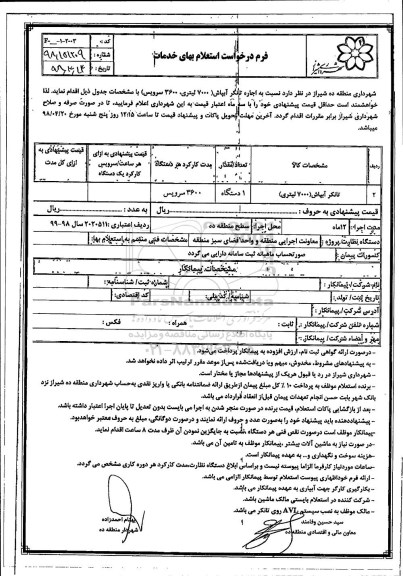 کد: F_۰۰-۱۰۲۰۰۳
شماره: ۹۸/۱۵۱۲۰۹
تاریخ: ۹۸/۴/۴
فرم درخواست استعلام بهای خدمات
شهرداری منطقه ده شیراز در نظر دارد نسبت به اجاره تانکر آبپاش( ۷۰۰۰ لیتری، ۳۶۰۰ سرویس) با مشخصات جدول ذیل اقدام نماید. لذا
خواهشمند است حداقل قیمت پیشنهادی خود را با سه ماه اعتبار قیمت به این شهرداری اعلام فرمایید، تا در صورت صرفه و صلاح
شهرداری شیراز برابر مقررات اقدام گردد. آخرین مهلت تحویل پاکات و پیشنهاد قیمت تا ساعت ۱۲:۱۵ روز پنج شنبه مورخ ۹۸/۰۴/۲۰
میباشد.
ردیف مشخصات کالا تعداد/مقدار مدت کارکرد هر دستگاه قیمت پیشنهادی به ازای هر ساعت/سرویس کارکرد یک دستگاه قیمت پیشنهادی به ازای کل مدت
۲ تانکر آبپاش(۷۰۰۰ لیتری) ۱ دستگاه ۳۶۰۰ سرویس
قیمت پیشنهادی به حروف : ریال به عدد : ریال
مدت اجرا: ۱۲ماه محل اجرا: سطح منطقه ده ردیف اعتباری : ۲۰۲۰۵۱۱ سال ۹۸-۹۹
دستگاه نظارت پروژه : معاونت اجرایی منطقه و واحد فضای سبز منطقه مشخصات فنی منضم به استعلام بها
کسورات پیمان : صورتحساب ماهیانه ثبت سامانه دارایی می گردد
مشخصات پیمانکار
نام شرکت/ پیمانکار : شماره ثبت/ شناسنامه:
تاریخ ثبت/ تولد: شناسه/ کد ملی: کد اقتصادی:
آدرس شرکت/ پیمانکار:
شماره تلفن شرکت/ پیمانکار: ثابت : همراه : فکس :
مهر و امضاء شرکت/ پیمانکار:
- درصورت ارائه گواهی ثبت نام، ارزش افزوده به پیمانکار پرداخت می‌شود.
- به پیشنهادهای مشروط، مخدوش، مبهم ویا دریافت‌شده پس‌از موعد مقرر ترتیب اثر داده نخواهد شد.
- شهرداری شیراز در رد یا قبول هریک از پیشنهادها مجاز یا مختار است.
- برنده استعلام موظف به پرداخت ۱۰ % کل مبلغ پیمان ازطریق ارائه ضمانتنامه بانکی یا واریز نقدی به‌حساب شهرداری منطقه ده شیراز نزد
بانک شهر بابت حسن انجام تعهدات پیمان قبل‌از انعقاد قرارداد می باشد.
- بعد از بازگشایی پاکات استعلام، قیمت برنده در صورت منجر شدن به اجرا می بایست بدون تعدیل تا پایان اجرا اعتبار داشته باشد.
- پیشنهاددهنده باید پیشنهاد خود را به‌صورت عدد و حروف ارائه نمایند و درصورت دوگانگی، مبلغ به حروف معتبر خواهدبود.
-پیمانکار موظف است درصورت نقص فنی هر دستگاه نسبت به جایگزین نمودن آن ظرف مدت ۸ ساعت اقدام نماید.
- در صورت نیاز به ماشین آلات بیشتر ،پیمانکار موظف به تامین آن می باشد.
-هزینه سوخت و نگهداری و... به عهده پیمانکار است.
-ساعات موردنیاز کارفرما الزاما پیوسته نیست و براساس ابلاغ دستگاه نظارت،مدت کارکرد هر دوره کاری مشخص می گردد.
- ارائه فرم خوداظهاری پیوست استعلام توسط پیمانکار الزامی می باشد.
- بکارگیری کارگر جهت آبیاری به عهده پیمانکار می باشد.
- شرکت کننده در استعلام بایستی مالک ماشین باشد.
- مالک موظف به نصب سیستم AVL روی تانکر می باشد.
۱
سید حسین وفامند
معاون مالی و اقتصادی منطقه ده
بهنام احمدزاده
شهردار منطقه ده